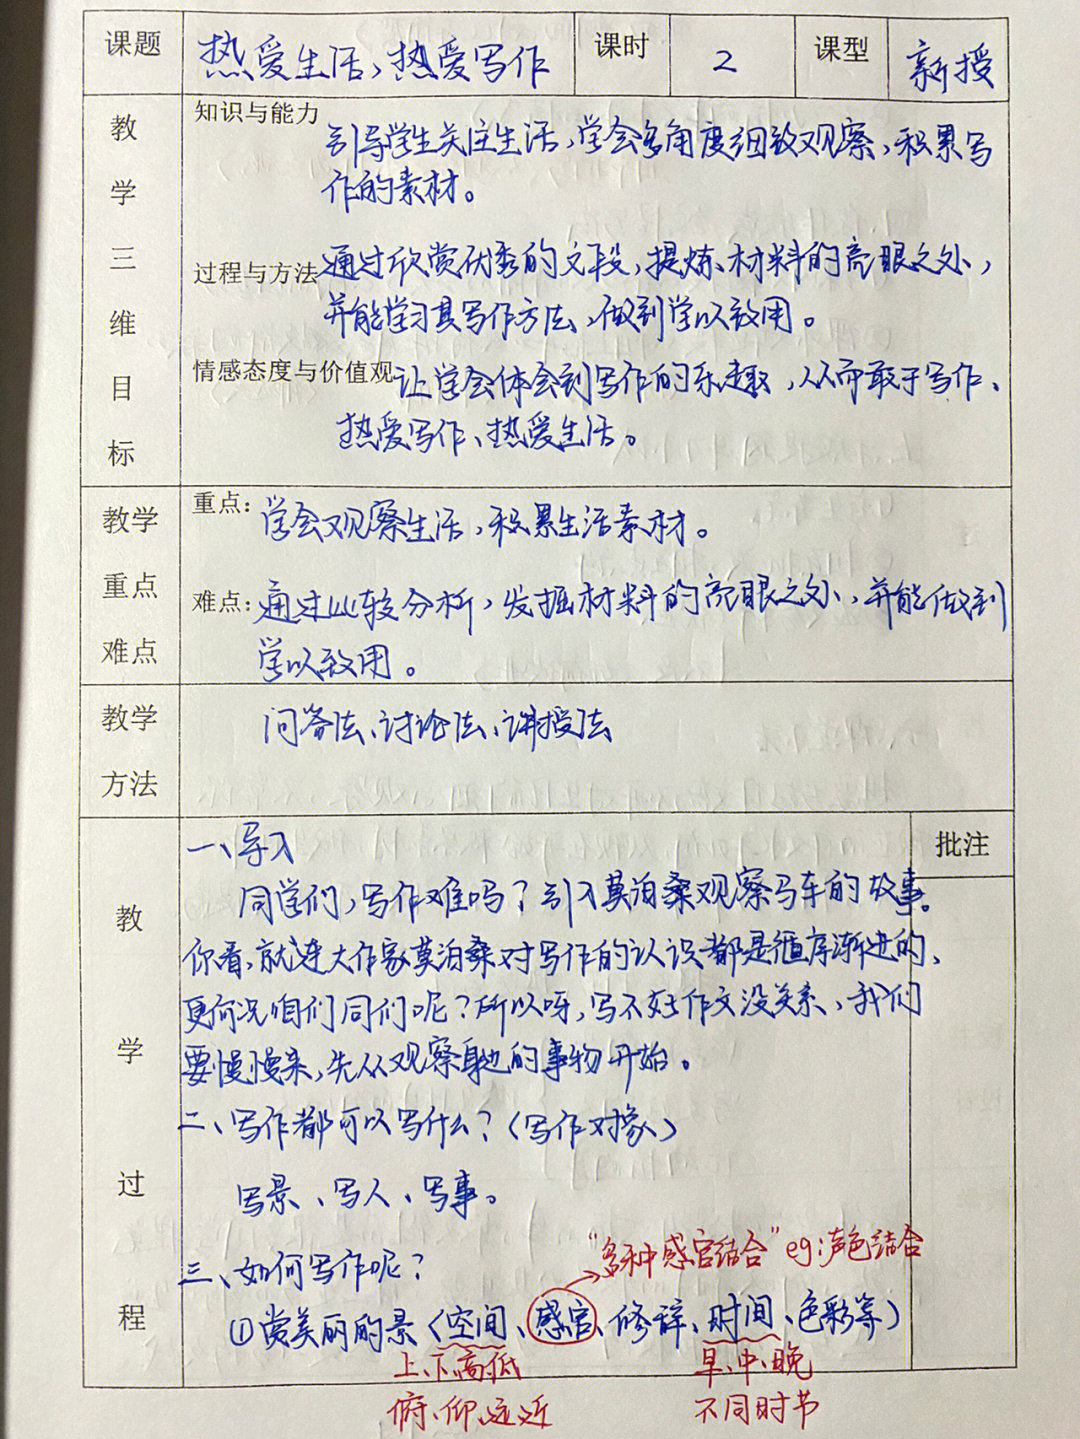 课题 热爱生活、热爱写作 课时 2 课型 新授
教学三维目标
知识与能力 引导学生关注生活,学会多角度细致观察,积累写
作的素材。
过程与方法 通过欣赏优秀的文段,提炼材料的亮眼之处,
并能学习其写作方法,做到学以致用。
情感态度与价值观 让学会体会到写作的乐趣,从而敢于写作、
热爱写作、热爱生活。
教学重点难点
重点: 学会观察生活,积累生活素材。
难点: 通过比较分析,发掘材料的亮眼之处,并能做到
学以致用。
教学方法
问答法、讨论法、讲授法
教学过程
批注
一、导入
同学们,写作难吗?引入莫泊桑观察马车的故事。
你看,就连大作家莫泊桑对写作的认识都是循序渐进的、
更何况咱们同们呢?所以呀,写不好作文没关系,我们
要慢慢来,先从观察身边的事物开始。
二、写作都可以写什么?(写作对象)
写景、写人、写事。
“多种感官结合”eg:声色结合
三、如何写作呢?
①赏美丽的景(空间、感官、修辞、时间、色彩等)
上、下、高、低 早、中、晚
俯、仰、远、近 不同时节